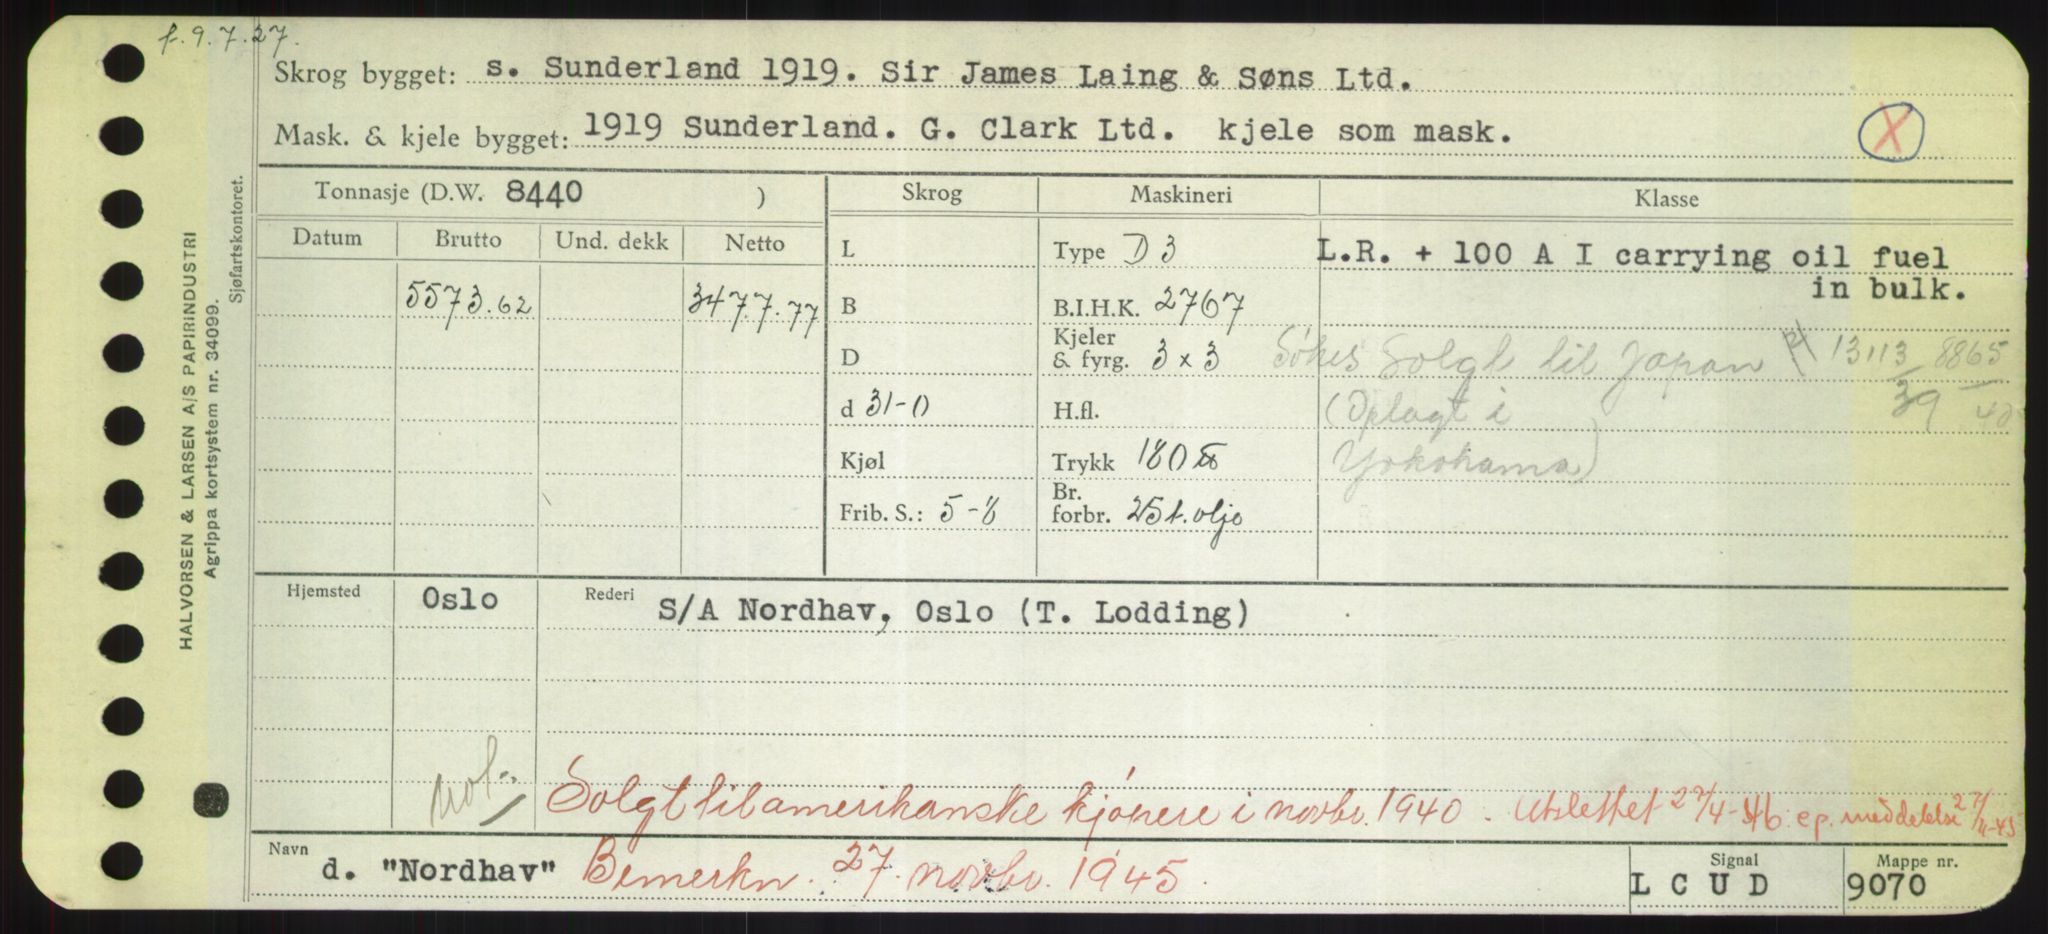 f. 9. 7. 27.
Skrog bygget: s. Sunderland 1919. Sir James Laing & Søns Ltd.
Mask. & kjele bygget: 1919 Sunderland. G. Clark Ltd. kjele som mask.
X
Tonnasje (D.W. 8440 )
Skrog
Maskineri
Klasse
Datum Brutto Und. dekk Netto
L
Type D 3
L.R. + 100 A I carrying oil fuel
in bulk.
5573.62 3477.77
B
B.I.H.K. 2767
D
Kjeler
& fyrg. 3 x 3
Søkes Solgt til Japan 13113/39 8865/40
d 31-0
H.fl.
(Oplagt i
Kjøl
Trykk 180 ℔
Yokohama)
Frib. S.: 5-8
Br.
forbr. 25 t. olje
Hjemsted Oslo
Rederi S/A Nordhav, Oslo (T. Lodding)
Solgt til amerikanske kjøpere i novbr. 1940. Utslettet 27/4-46 e.p. meddelelse 27/11-45
Navn d. "Nordhav" Bemerkn. 27. novbr. 1945.
Signal L C U D
Mappe nr. 9070
HALVORSEN & LARSEN A/S PAPIRINDUSTRI
Agrippa kortsystem nr. 34099.
Sjøfartskontoret.